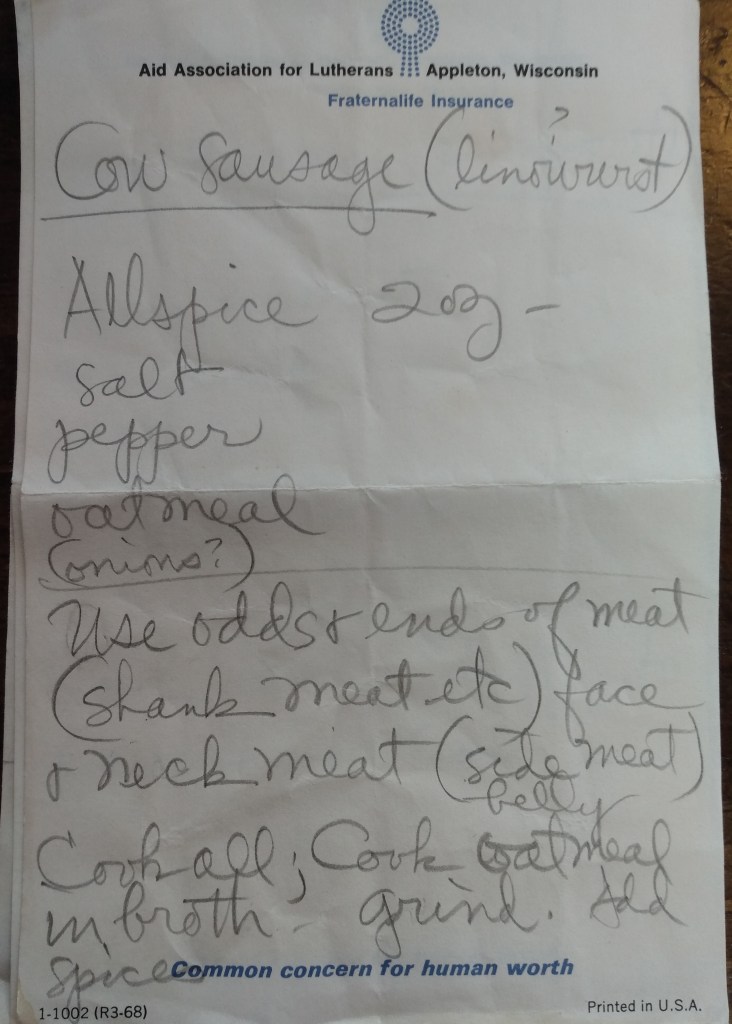 Aid Association for Lutherans Appleton, Wisconsin
Fraternalife Insurance
?
Cow Sausage (linsiwurst)
Allspice 2oz -
salt
pepper
oatmeal
(onions?)
Use odds & ends of meat
(shank meat etc) face
& neck meat (side meat)
belly
Cook all; Cook oatmeal
in broth - grind. Add
spices
Common concern for human worth
1-1002 (R3-68)
Printed in U.S.A.